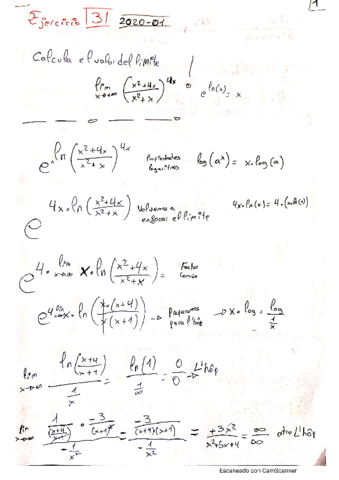 1
Ejercicio 3 2020-01
Calcula el valor del límite
lim x→∞ ((x²+4x)/(x²+x))^4x ! e^ln(x) = x
e^ln((x²+4x)/(x²+x))^4x Propiedades logaritmos log(a^x) = x·log(a)
e^4x·ln((x²+4x)/(x²+x)) Volvemos a enfocar el límite
e^4·lim x→∞ x·ln((x²+4x)/(x²+x)) = Factor Común
e^4·lim x→∞ x·ln((x·(x+4))/(x(x+1))) → Preparamos para l'hôp → x·log = log/(1/x)
lim x→∞ ln((x+4)/(x+1))/(1/x) = ln(1)/(1/∞) = 0/0 → L'hôp
lim x→∞ (1/((x+4)/(x+1)) · -3/(x+1)²)/(-1/x²) = (-3/((x+4)(x+1)))/(-1/x²) = +3x²/(x²+5x+4) = ∞/∞ otro L'hôp
Escaneado con CamScanner